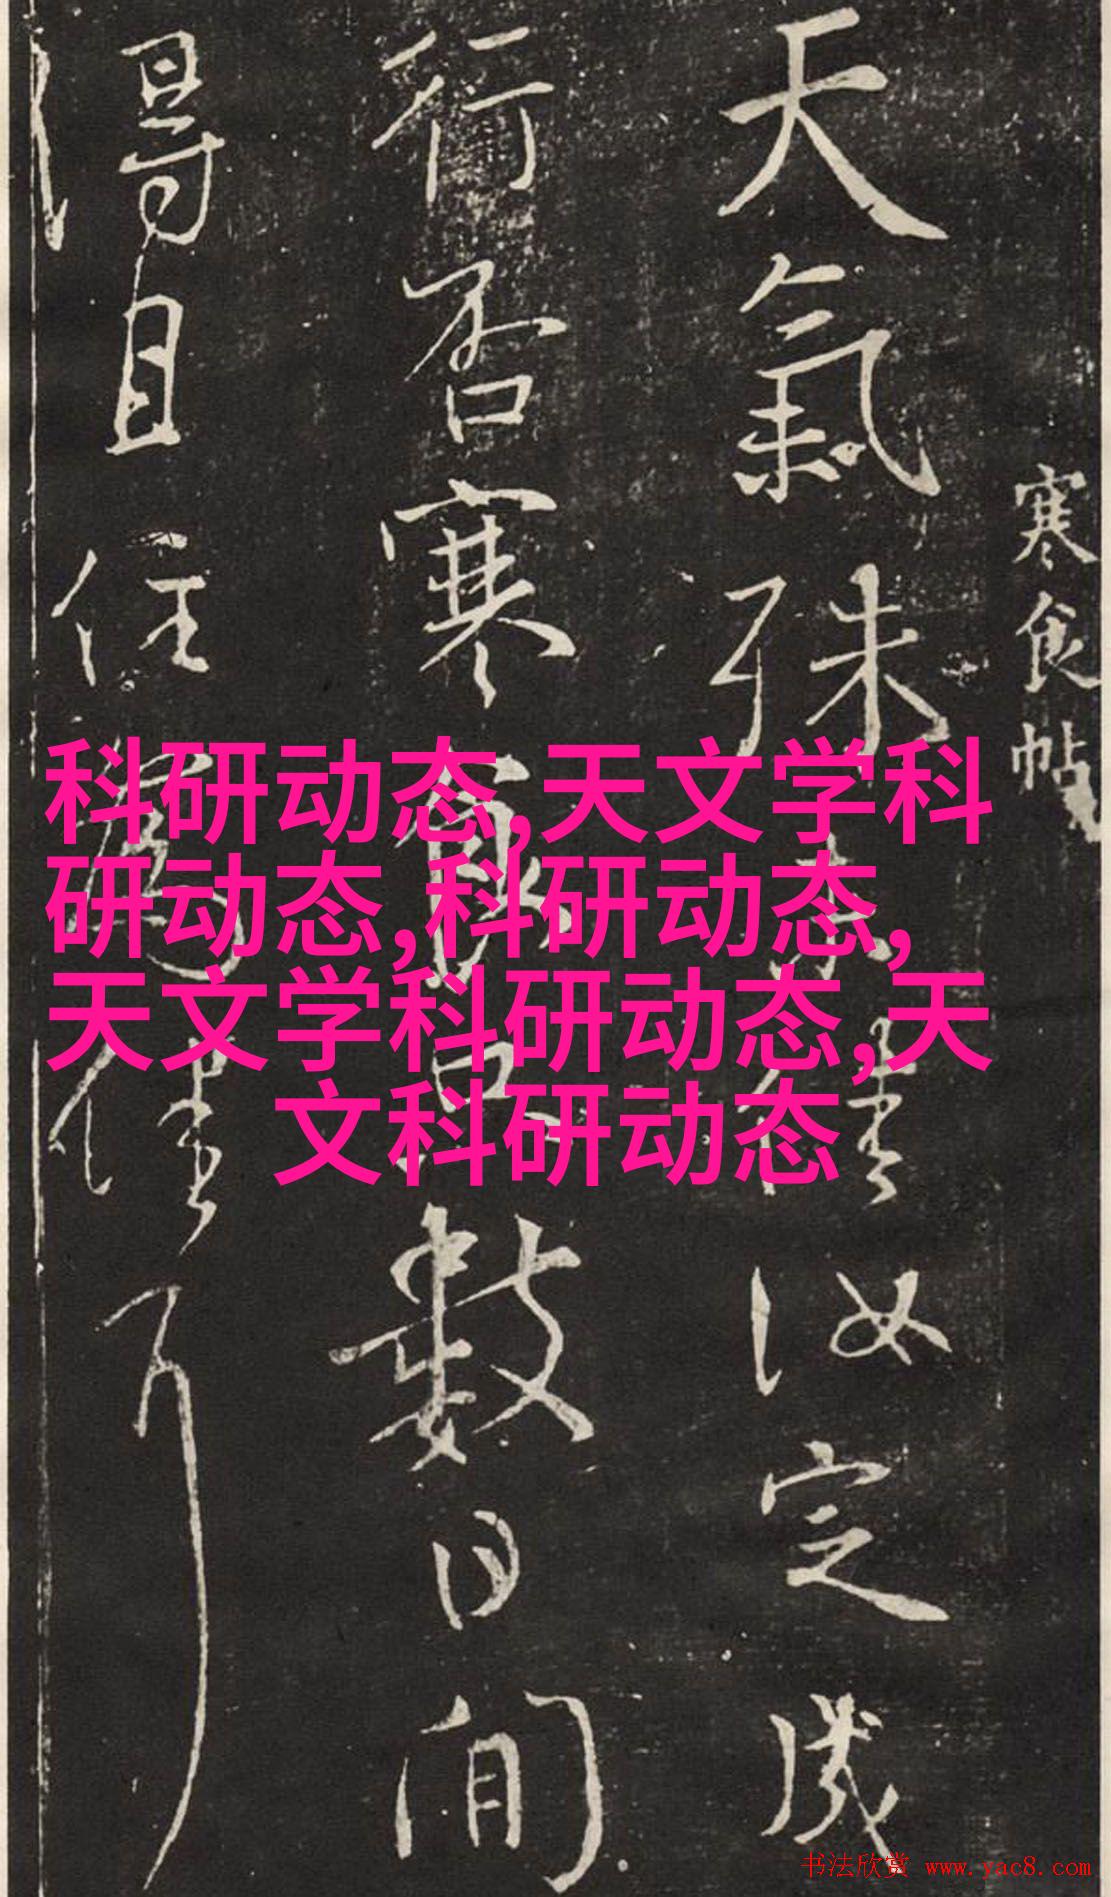 寒食帖
天氣殊未佳汝定成
行否寒食只數日間
得且住為佳耳
科研动态,天文学科
研动态,科研动态,
天文学科研动态,天
文科研动态
书法欣赏 www.yac8.com